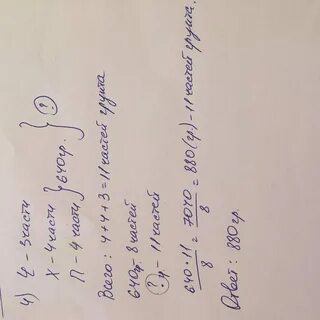 4) Ч - 3 части
Х - 4 части } 640 гр. } ?
П - 4 части
Всего: 4+4+3=11 частей грунта
640гр. - 8 частей
? гр - 11 частей
640·11/8 = 7040/8 = 880 (гр) - 11 частей грунта.
Ответ: 880 гр.